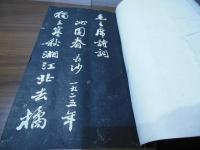 毛主席诗词
沁园春 长沙
一九二五年
独立寒秋湘江北去橘